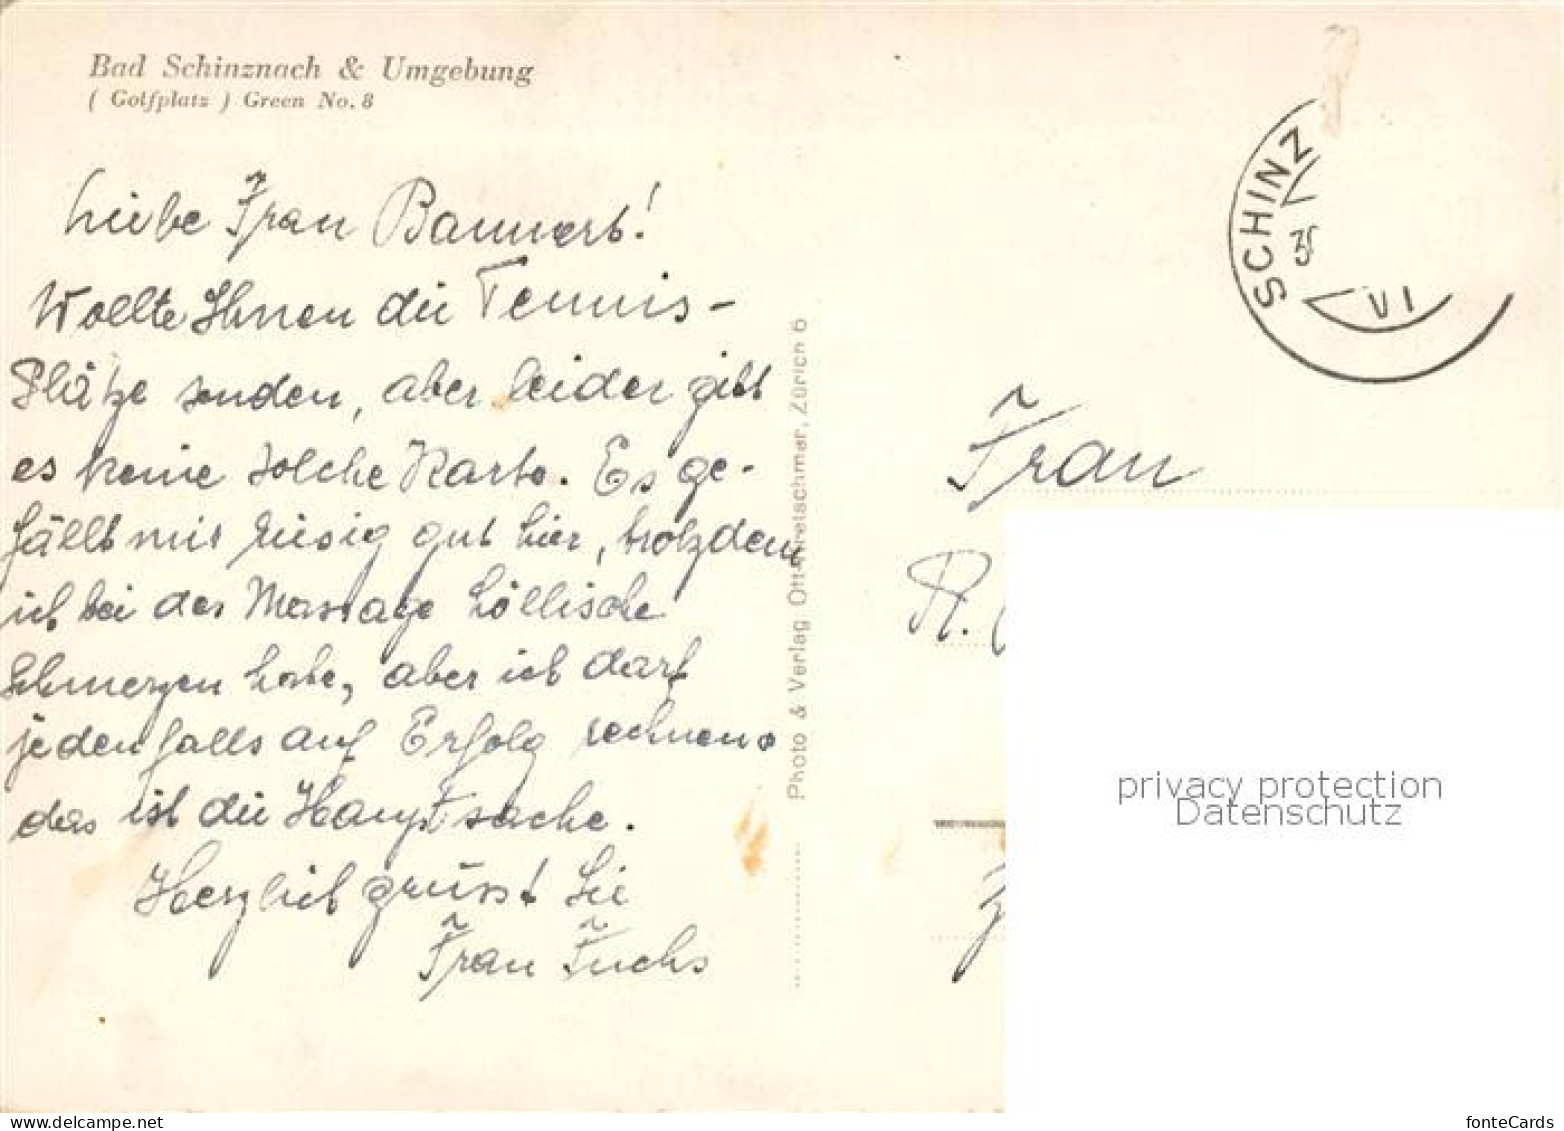 Bad Schinznach & Umgebung
( Golfplatz ) Green No. 8
Liebe Frau Bannert!
Wollte Ihnen die Tennis-
Plätze senden, aber leider gibt
es keine solche Karte. Es ge-
fällt mir riesig gut hier, trotzdem
ich bei der Massage höllische
Schmerzen habe, aber ich darf
jedenfalls auf Erfolg rechnen u
das ist die Hauptsache.
Herzlich grüsst Sie
Frau Fuchs
Photo & Verlag Otto Kretschmer, Zürich 6
SCHINZ
VI
Frau
R.
privacy protection
Datenschutz
fonteCards